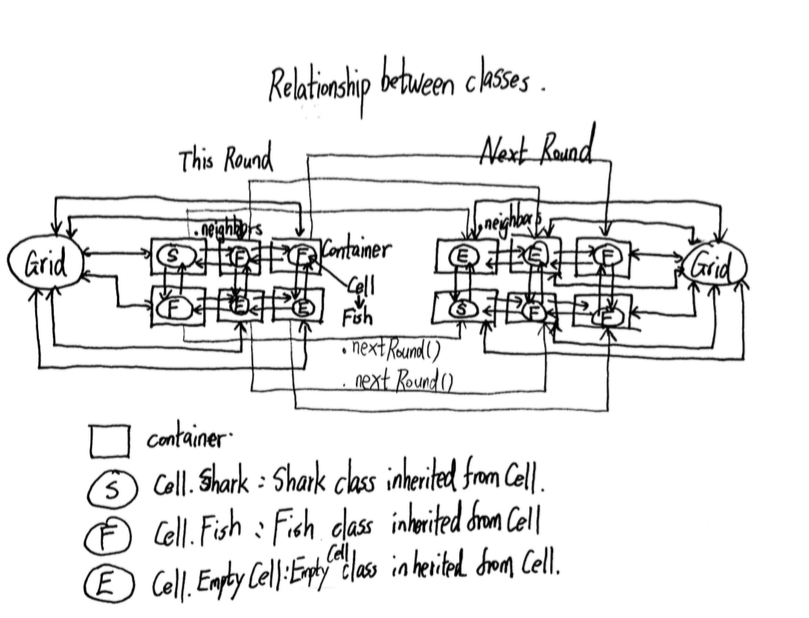 Relationship between classes.
This Round
Next Round
.neighbors
.neighbors
Grid
S
F
F
Container
E
E
F
Grid
Cell
F
E
E
Fish
S
F
F
.nextRound()
.nextRound()
container.
S Cell.Shark : Shark class inherited from Cell.
F Cell.Fish : Fish class inherited from Cell
E Cell.EmptyCell : EmptyCell class inherited from Cell.